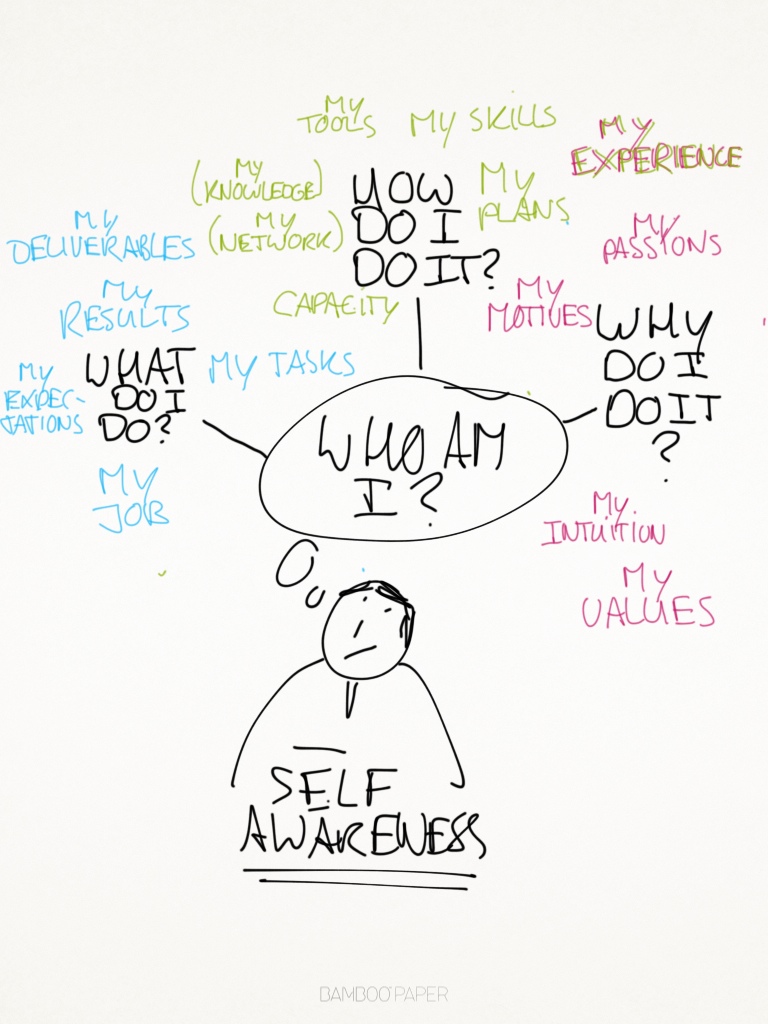 MY
TOOLS
MY SKILLS
MY
EXPERIENCE
MY
(KNOWLEDGE)
MY
(NETWORK)
HOW
DO I
DO IT?
MY
PLANS
CAPACITY
MY
DELIVERABLES
MY
RESULTS
MY TASKS
WHAT
DO I
DO?
MY
EXPEC-
TATIONS
MY
JOB
MY
PASSIONS
MY
MOTIVES
WHY
DO I
DO IT
?
MY
INTUITION
MY
VALUES
WHO AM
I?
SELF
AWARENESS
BAMBOO PAPER